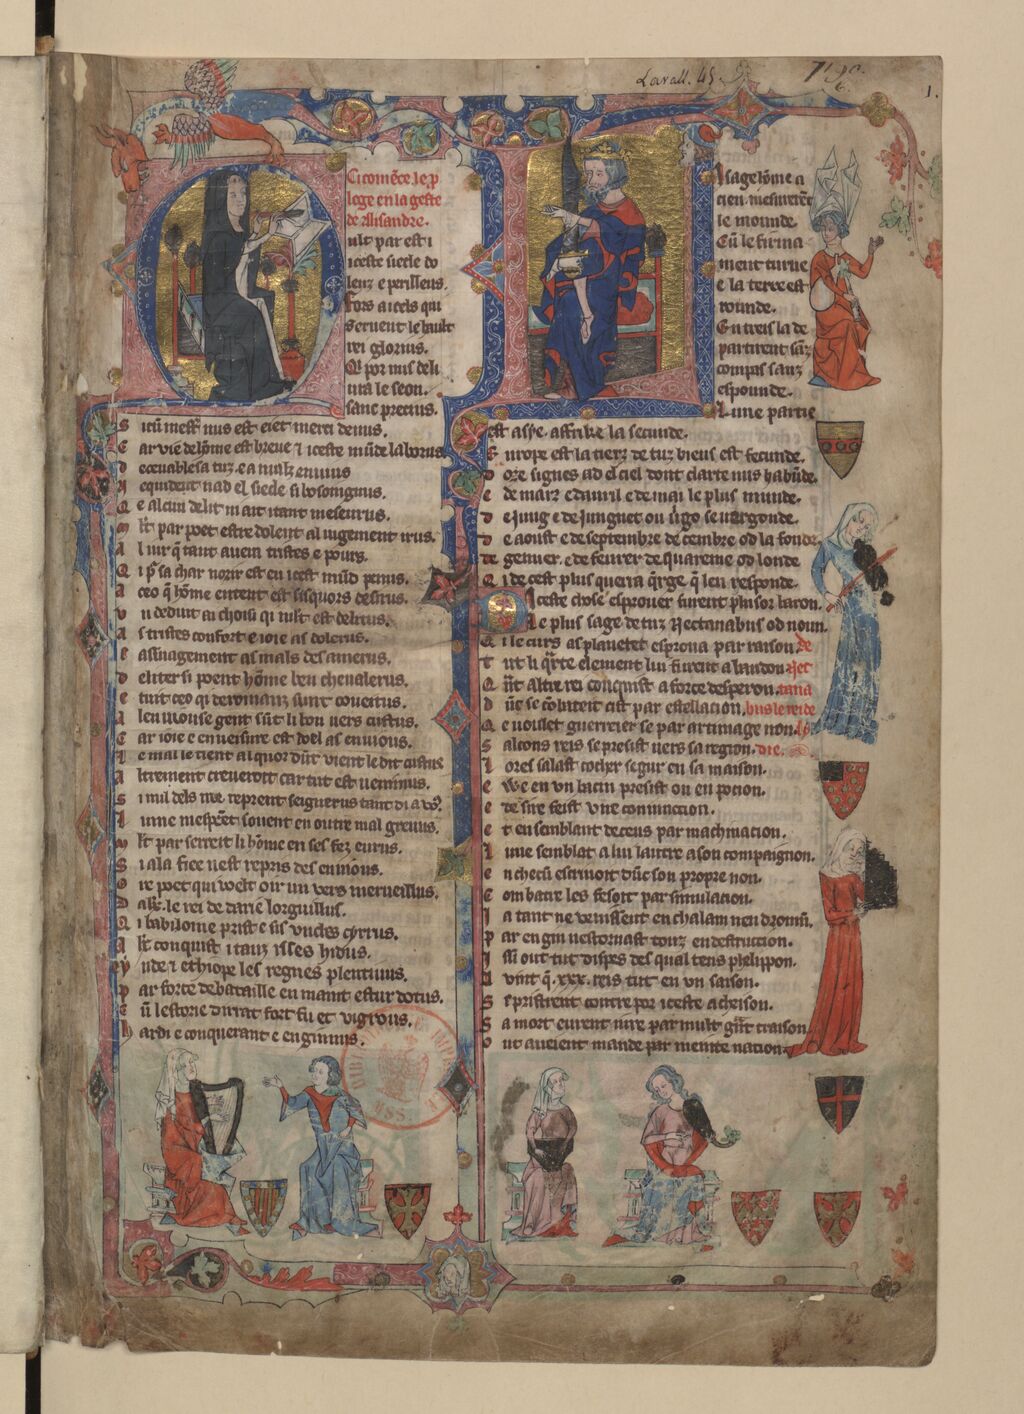 Lavall. 45.
1.
Ci comēce le p
loge en la geste
de Alisandre.
ult par est i
iceste siecle do
leuz e perilleus.
Fors a icels qui
seruent le hault
rei glorius.
Q̄ por nus deli
ura le seon
sanc precius.
S icū mestˀ nus est eiet merci de nus.
C ar vie delōme est breue ⁊ iceste mūde laborus
D
R equident nad el siecle si bosoignus.
Q e alcun delit
M lt par poet estre dolent al iugement irus.
A l iur q̄ tant auera tristes e pours.
Q i pˀ sa char norir est en icest mūd penus.
A ceo q̄ hōme entent est sis quors desirus.
V n deduit ai choisi qi mlt est delitus.
A s tristes confort e ioie as dolerus.
E assuagement as mals des amerus.
D eliter si poent hōme ben cheualerus.
E tuit ceo qi de romanz sunt coueitus.
A
C ar ioie e enueisure est doel as enuious.
E mal le tient al quor dūt vient le dit
A ltrement creuerott car tut est ueninus.
S i mil dels me reprent
I
M lt par serreit li hōme en ses fez eurus.
S i a la fice nest repris des enuious.
O re poet qui uoelt oir un uers merueillus.
D alix. le rei de darie lorguillus.
Q i babilonie prist e sis vncles cyrius.
A lt conquist itauz isles hidus.
ey nde ⁊ ethiope les regnes plentiuus.
P ar force de bataille en maint estur dotus.
C ū lestorie
H ardi e conquerant e enginnus.
Isage lōme a
cien mesurerēt
le mounde.
Cū le firma
ment turne
e la terre est
rounde.
En treis la de
partirent sāz
compas sanz
espounde.
Lune partie
est asye. affrike la secunde.
E urope est la tierz de tuz biens est fecunde.
D oze signes ad el ciel dont clarte nus habūde.
E de marz e dauril e de mai le plus munde.
D e iung e de iungnet ou uigo se uergonde.
D e aoust e de septembre de cembre od la founde
de genuer. e de feurer de quareme od londe
Q i de cest plus querra q̄rge q̄ len responde.
Iceste chose esprouer furent plusor baron.
Le plus sage de tuz Nectanabus od noun.
Q i le curs as planetes esproua par raison. de
T ut li q̄rte element lui furent abaudon Nec
Q n̄t altre rei conquist a force desperon. tana
D ūc se cōbateit cist par estellacion. bus le rei de
Q e uoulst guerreier se par artimage non. ly
S alcons reis se presist uers sa region. bie.
I lores salast cocher segur en sa maison.
E we en vn bacin presist ou en pocion.
E de sire feist vne coniunccion.
E t en semblant de ceus par machinacion.
I une semblāt a lui lautere a son compaignon.
E n checū escriuoit dūc son propre non.
C ombatre les fesoit par simulacion.
I a tant ne venissent en chalam neu dromūn.
P ar engin nes tornast touz en destruccion.
I ssi out tut dispes des qual tens phelippon.
A vint q̄ .xxx. reis tut en vn saison.
S e pristrent contre por iceste acheison.
S a mort eurent iure par mult gn̄t traison
O ut aueient mande par meinte nacion